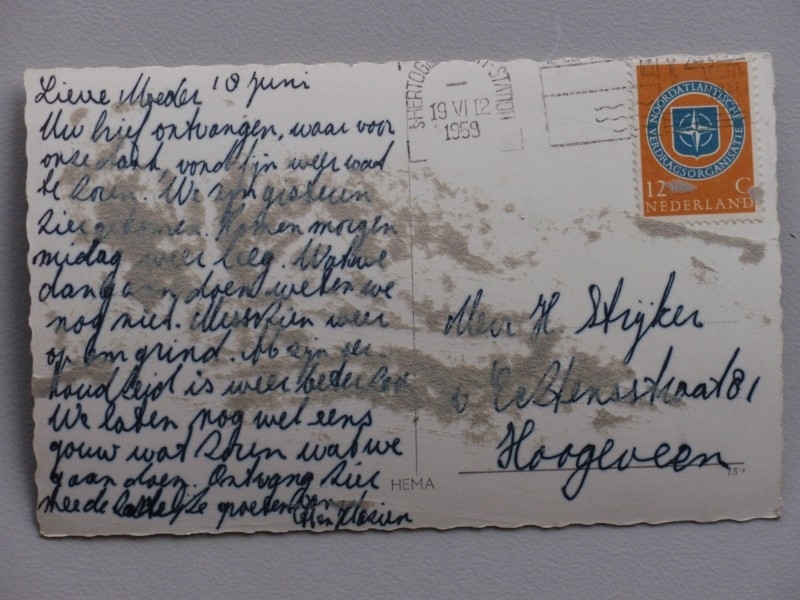 Lieve Moeder 18 Juni
Uw brief ontvangen, waar voor
onze dank vond fijn weer wat
te horen. We zijn gisteren
hier gekomen. Komen morgen
midag weer leeg. Wat we
dan gaan doen weten we
nog niet. Misschien weer
op om grind. Ab zijn ver
koudheid is weer beter
We laten nog wel eens
gouw wat horen wat we
gaan doen. Ontvang hier
mede hartelijke groeten van
S HERTOGE
19 VI 12
1959
STATION
NOORDATLANTISCHE
VERDRAGSORGANISATIE
12 C
NEDERLAND
Mevr H Strijker
v Echtensstraat 81
Hoogeveen
HEMA